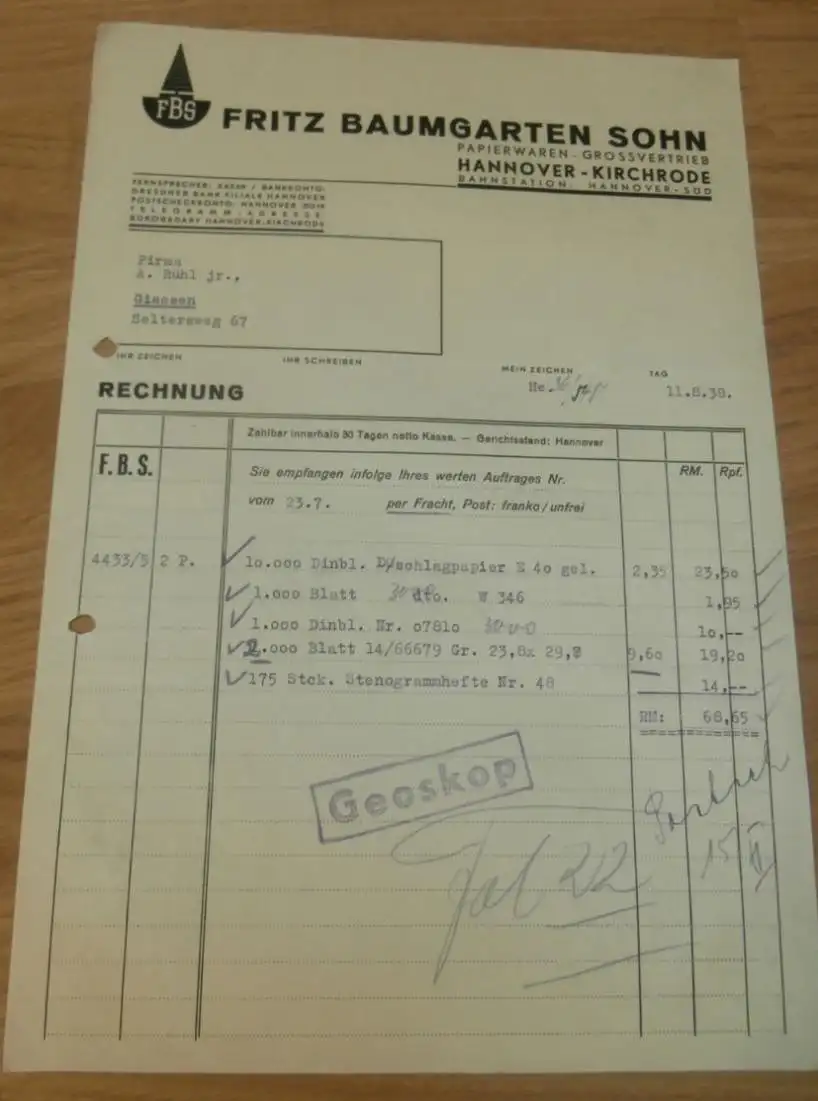 FBS
FRITZ BAUMGARTEN SOHN
PAPIERWAREN - GROSSVERTRIEB
HANNOVER - KIRCHRODE
BAHNSTATION: HANNOVER - SÜD
FERNSPRECHER: / BANKKONTO:
DRESDNER BANK FILIALE HANNOVER
POSTSCHECKKONTO: HANNOVER
TELEGRAMM-ADRESSE
BÜROBEDARF HANNOVER-KIRCHRODE
Firma
A. Rühl jr.,
Giessen
Seltersweg 67
IHR ZEICHEN IHR SCHREIBEN MEIN ZEICHEN TAG
He. 11.8.38.
RECHNUNG
Zahlbar innerhalb 30 Tagen netto Kasse. — Gerichtsstand: Hannover
F.B.S. Sie empfangen infolge Ihres werten Auftrages Nr. RM. Rpf.
vom 23.7. per Fracht, Post: franko/unfrei
4433/5 2 P. 10.000 Dinbl. D/schlagpapier E 40 gel. 2,35 23,50
1.000 Blatt dto. W 346 1,95
1.000 Dinbl. Nr. 07810 10,--
2.000 Blatt 14/66679 Gr. 23,8x 29,7 9,60 19,20
175 Stck. Stenogrammhefte Nr. 48 14,--
RM: 68,65
Geoskop
22
15